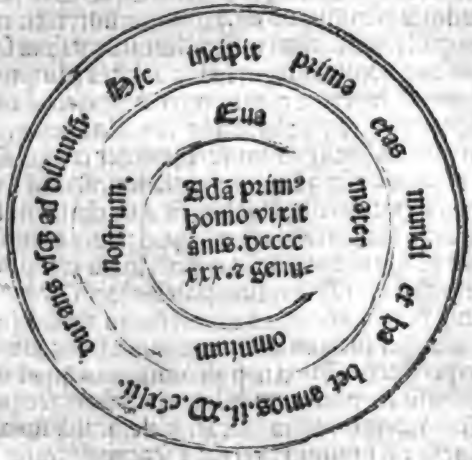 Hic incipit prima etas mundi et ha bet annos.ii.M.ccxlii. durans vsqꝫ ad diluuiũ.
Eua mater omnium nostrum,
Adā primꝰ
homo vixit
ānis.dcccc
xxx.⁊ genu=